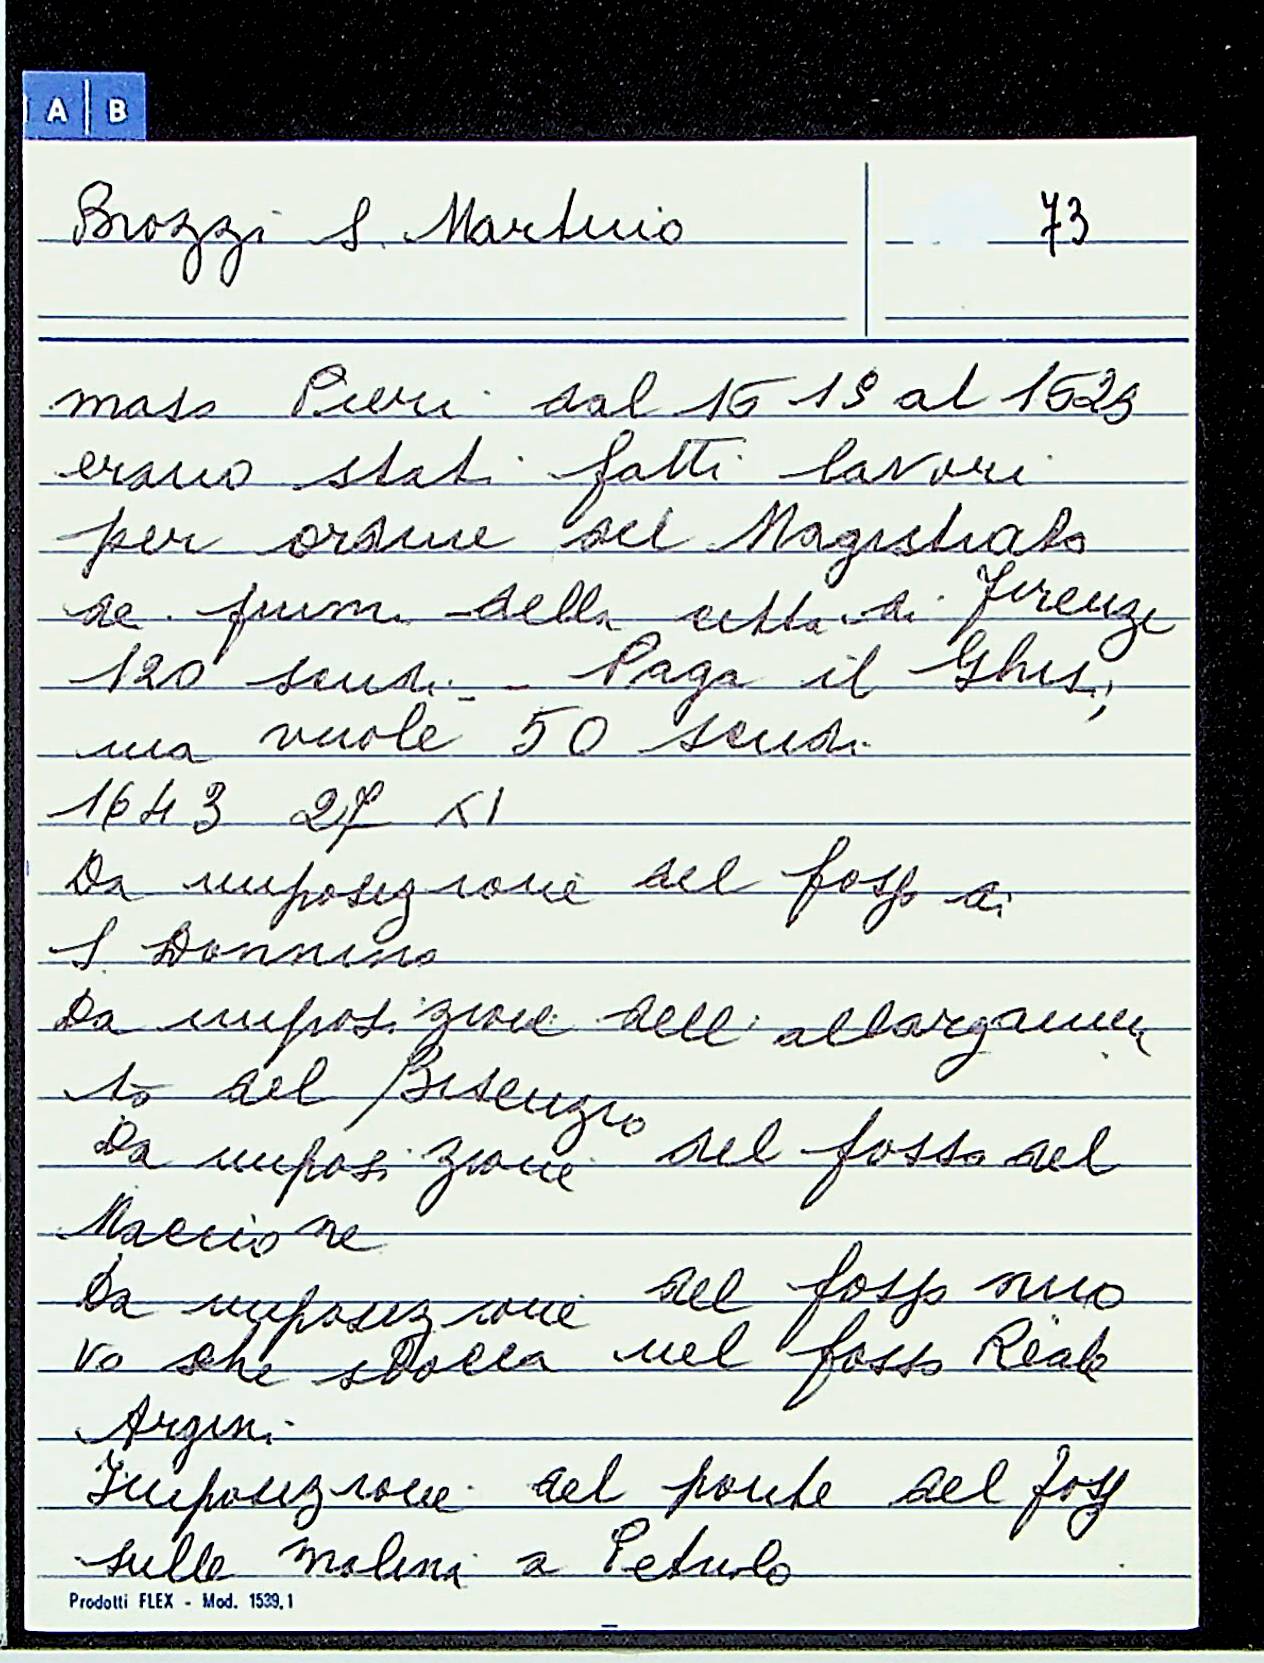 A B
Brozzi S. Martino 73
maso Pieri dal 1619 al 1623
erano stati fatti lavori
per ordine del Magistrato
de fiumi della città di Firenze
120 scudi - Paga il Ghis.,
ma vuole 50 scudi
1643 27 XI
Da imposizione del fosso di
S. Donnino
Da imposizione dell'allargamen
to del Bisenzio
Da imposizione del fosso del
Maccione
Da imposizione del fosso nuo
vo che sbocca nel fosso Reale
Argini
Imposizione del ponte del foss
sulle molina a Petriolo
Prodotti FLEX - Mod. 1539.1